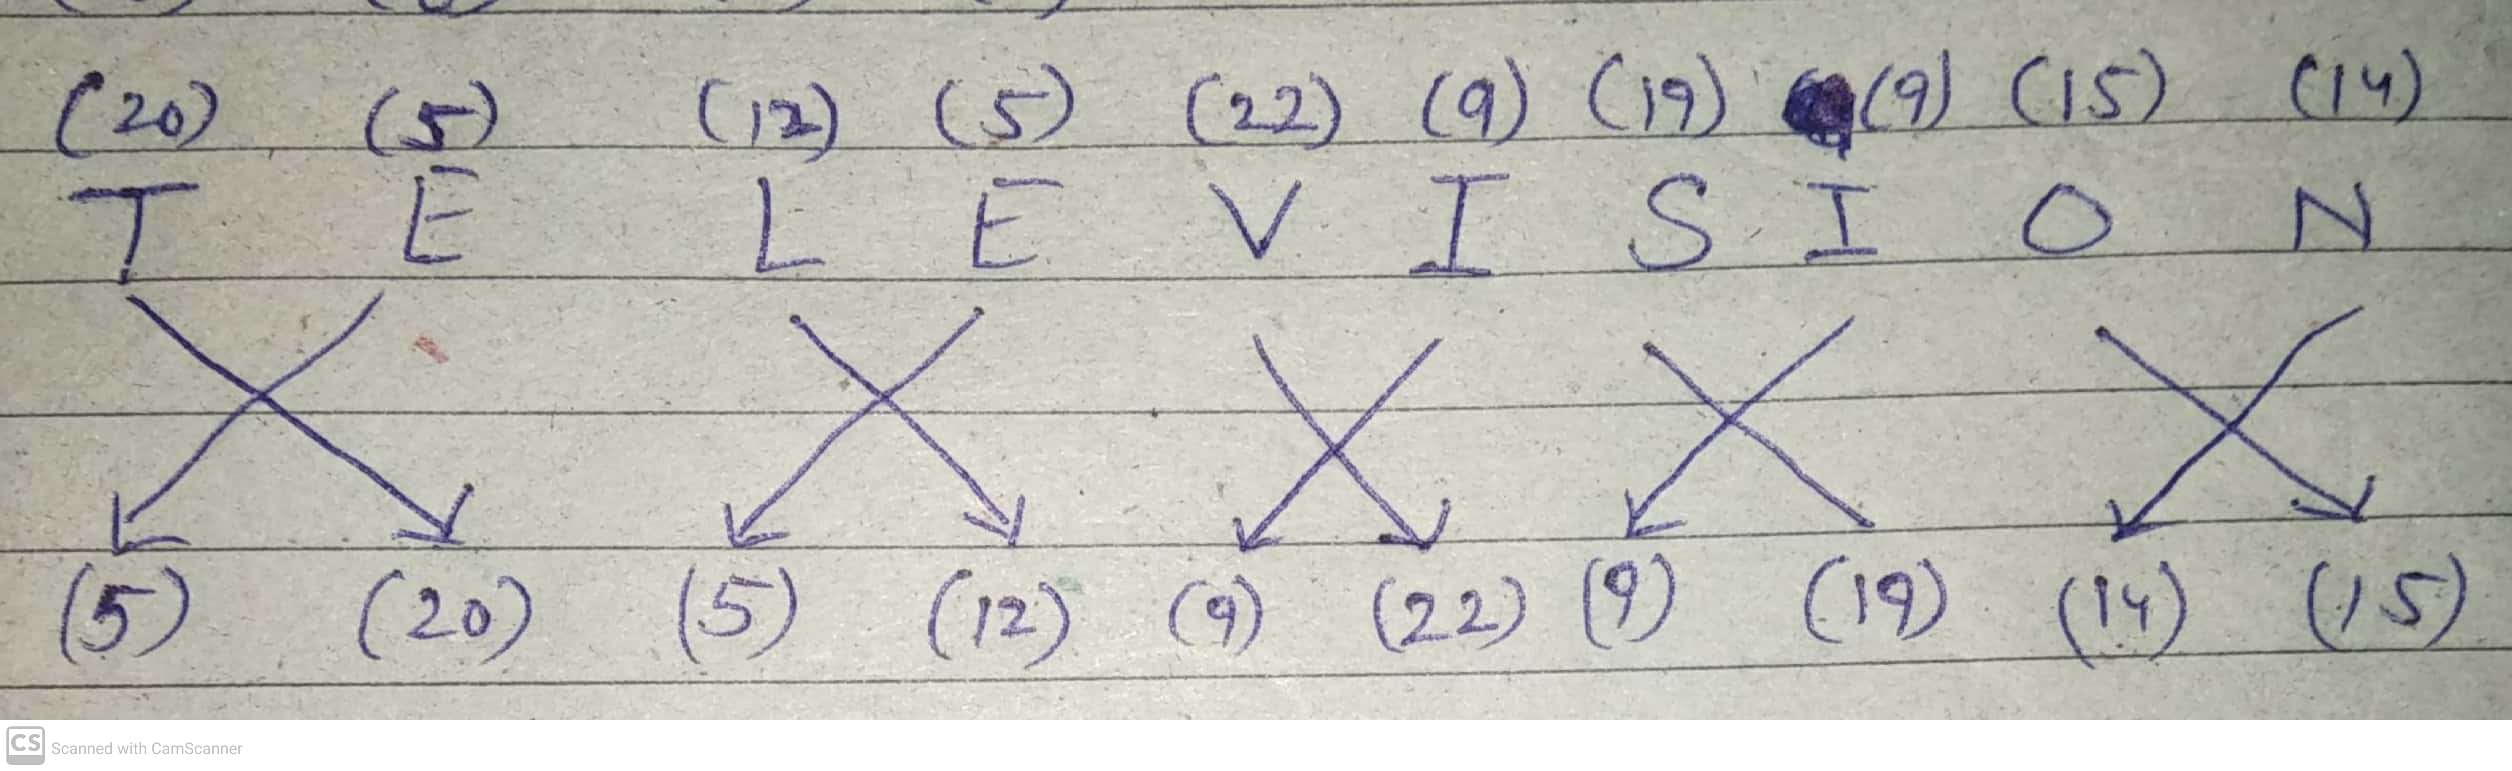 (20) (5) (12) (5) (22) (9) (19) (9) (15) (14)
T E L E V I S I O N
(5) (20) (5) (12) (9) (22) (9) (19) (14) (15)
CS Scanned with CamScanner